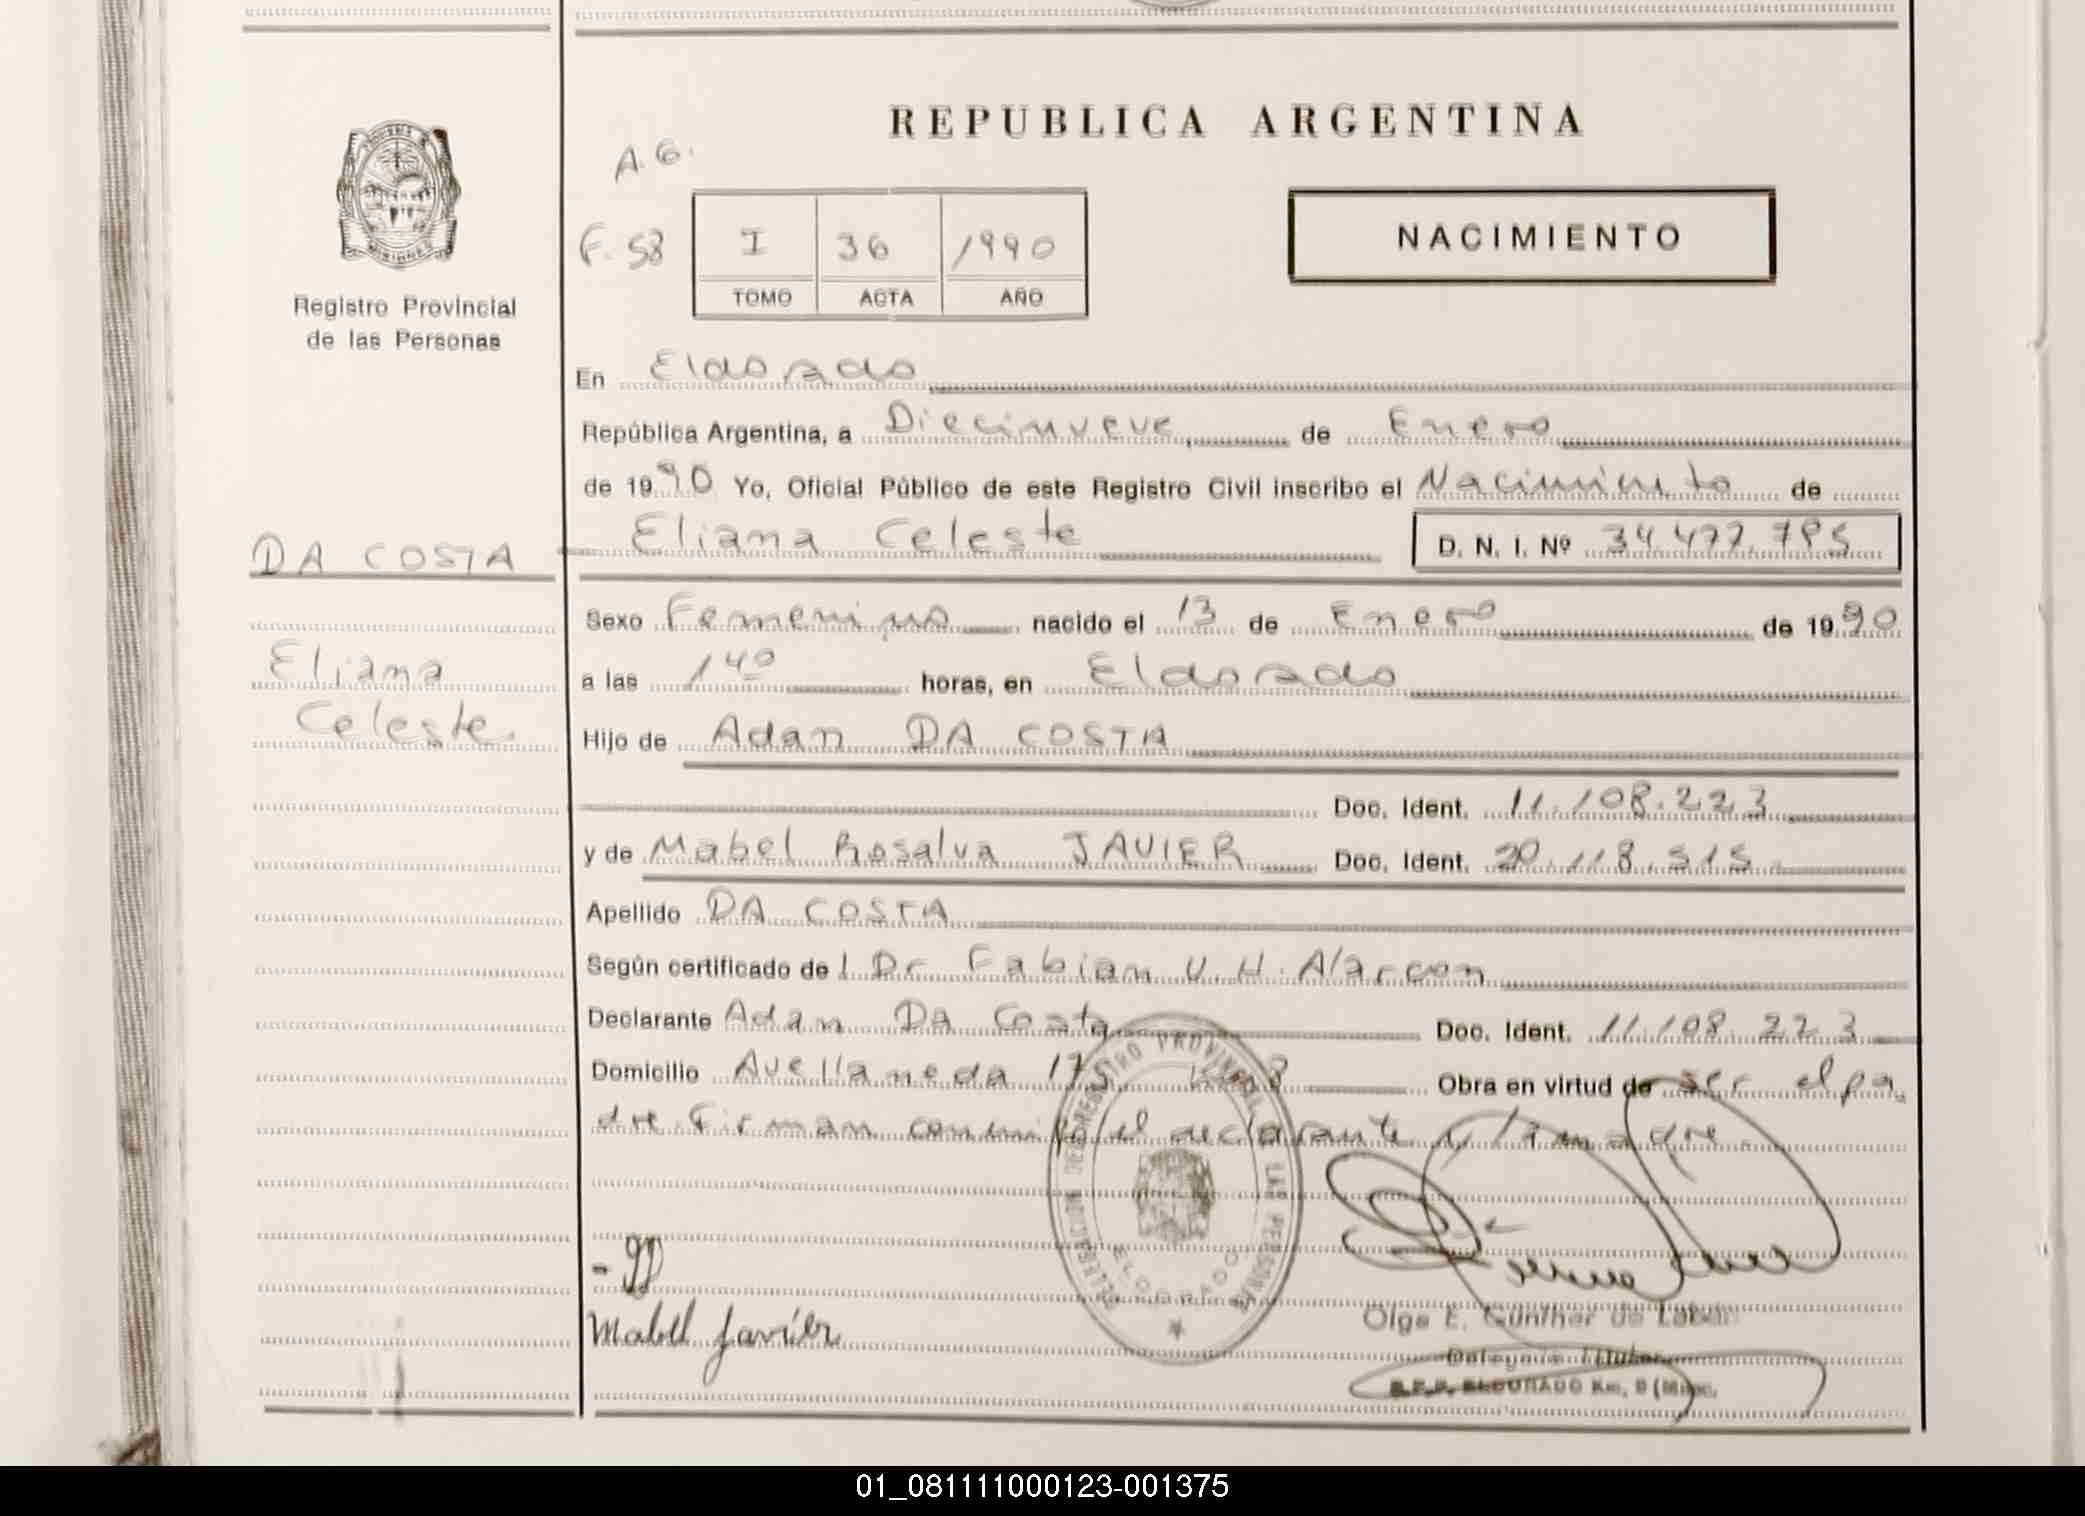 REPUBLICA ARGENTINA
A.G.
F. 58
I 36 1990
TOMO ACTA AÑO
NACIMIENTO
Registro Provincial
de las Personas
En Eldorado
República Argentina, a Diecinueve, de Enero
de 1990 Yo, Oficial Público de este Registro Civil inscribo el Nacimiento de
DA COSTA
Eliana Celeste D. N. I. Nº 34.477.785
Sexo Femenino nacido el 13 de Enero de 1990
Eliana
a las 14º horas, en Eldorado
Celeste.
Hijo de Adan DA COSTA
Doc. Ident. 11.108.223
y de Mabel Rosalva JAVIER Doc. Ident. 20.118.515
Apellido DA COSTA
Según certificado de l Dr Fabian V. H. Alarcon
Declarante Adan Da Costa Doc. Ident. 11.108.223
Domicilio Avellaneda 175 Obra en virtud de ser el pa
dre. Firman conmigo el declarante y la madre
DELEGACION DE REGISTRO PROVINCIAL DE LAS PERSONAS
ELDORADO
Mabel Javier
Olga E. Günther de
Delegada Titular
R.P.P. ELDORADO Km. 9 (Mnes.
01_081111000123-001375